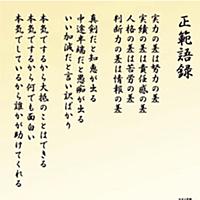 正範語録
実力の差は努力の差
実績の差は責任感の差
人格の差は苦労の差
判断力の差は情報の差
真剣だと知恵が出る
中途半端だと愚痴が出る
いい加減だと言い訳ばかり
本気でするから大抵のことはできる
本気でするから何でも面白い
本気でしているから誰かが助けてくれる